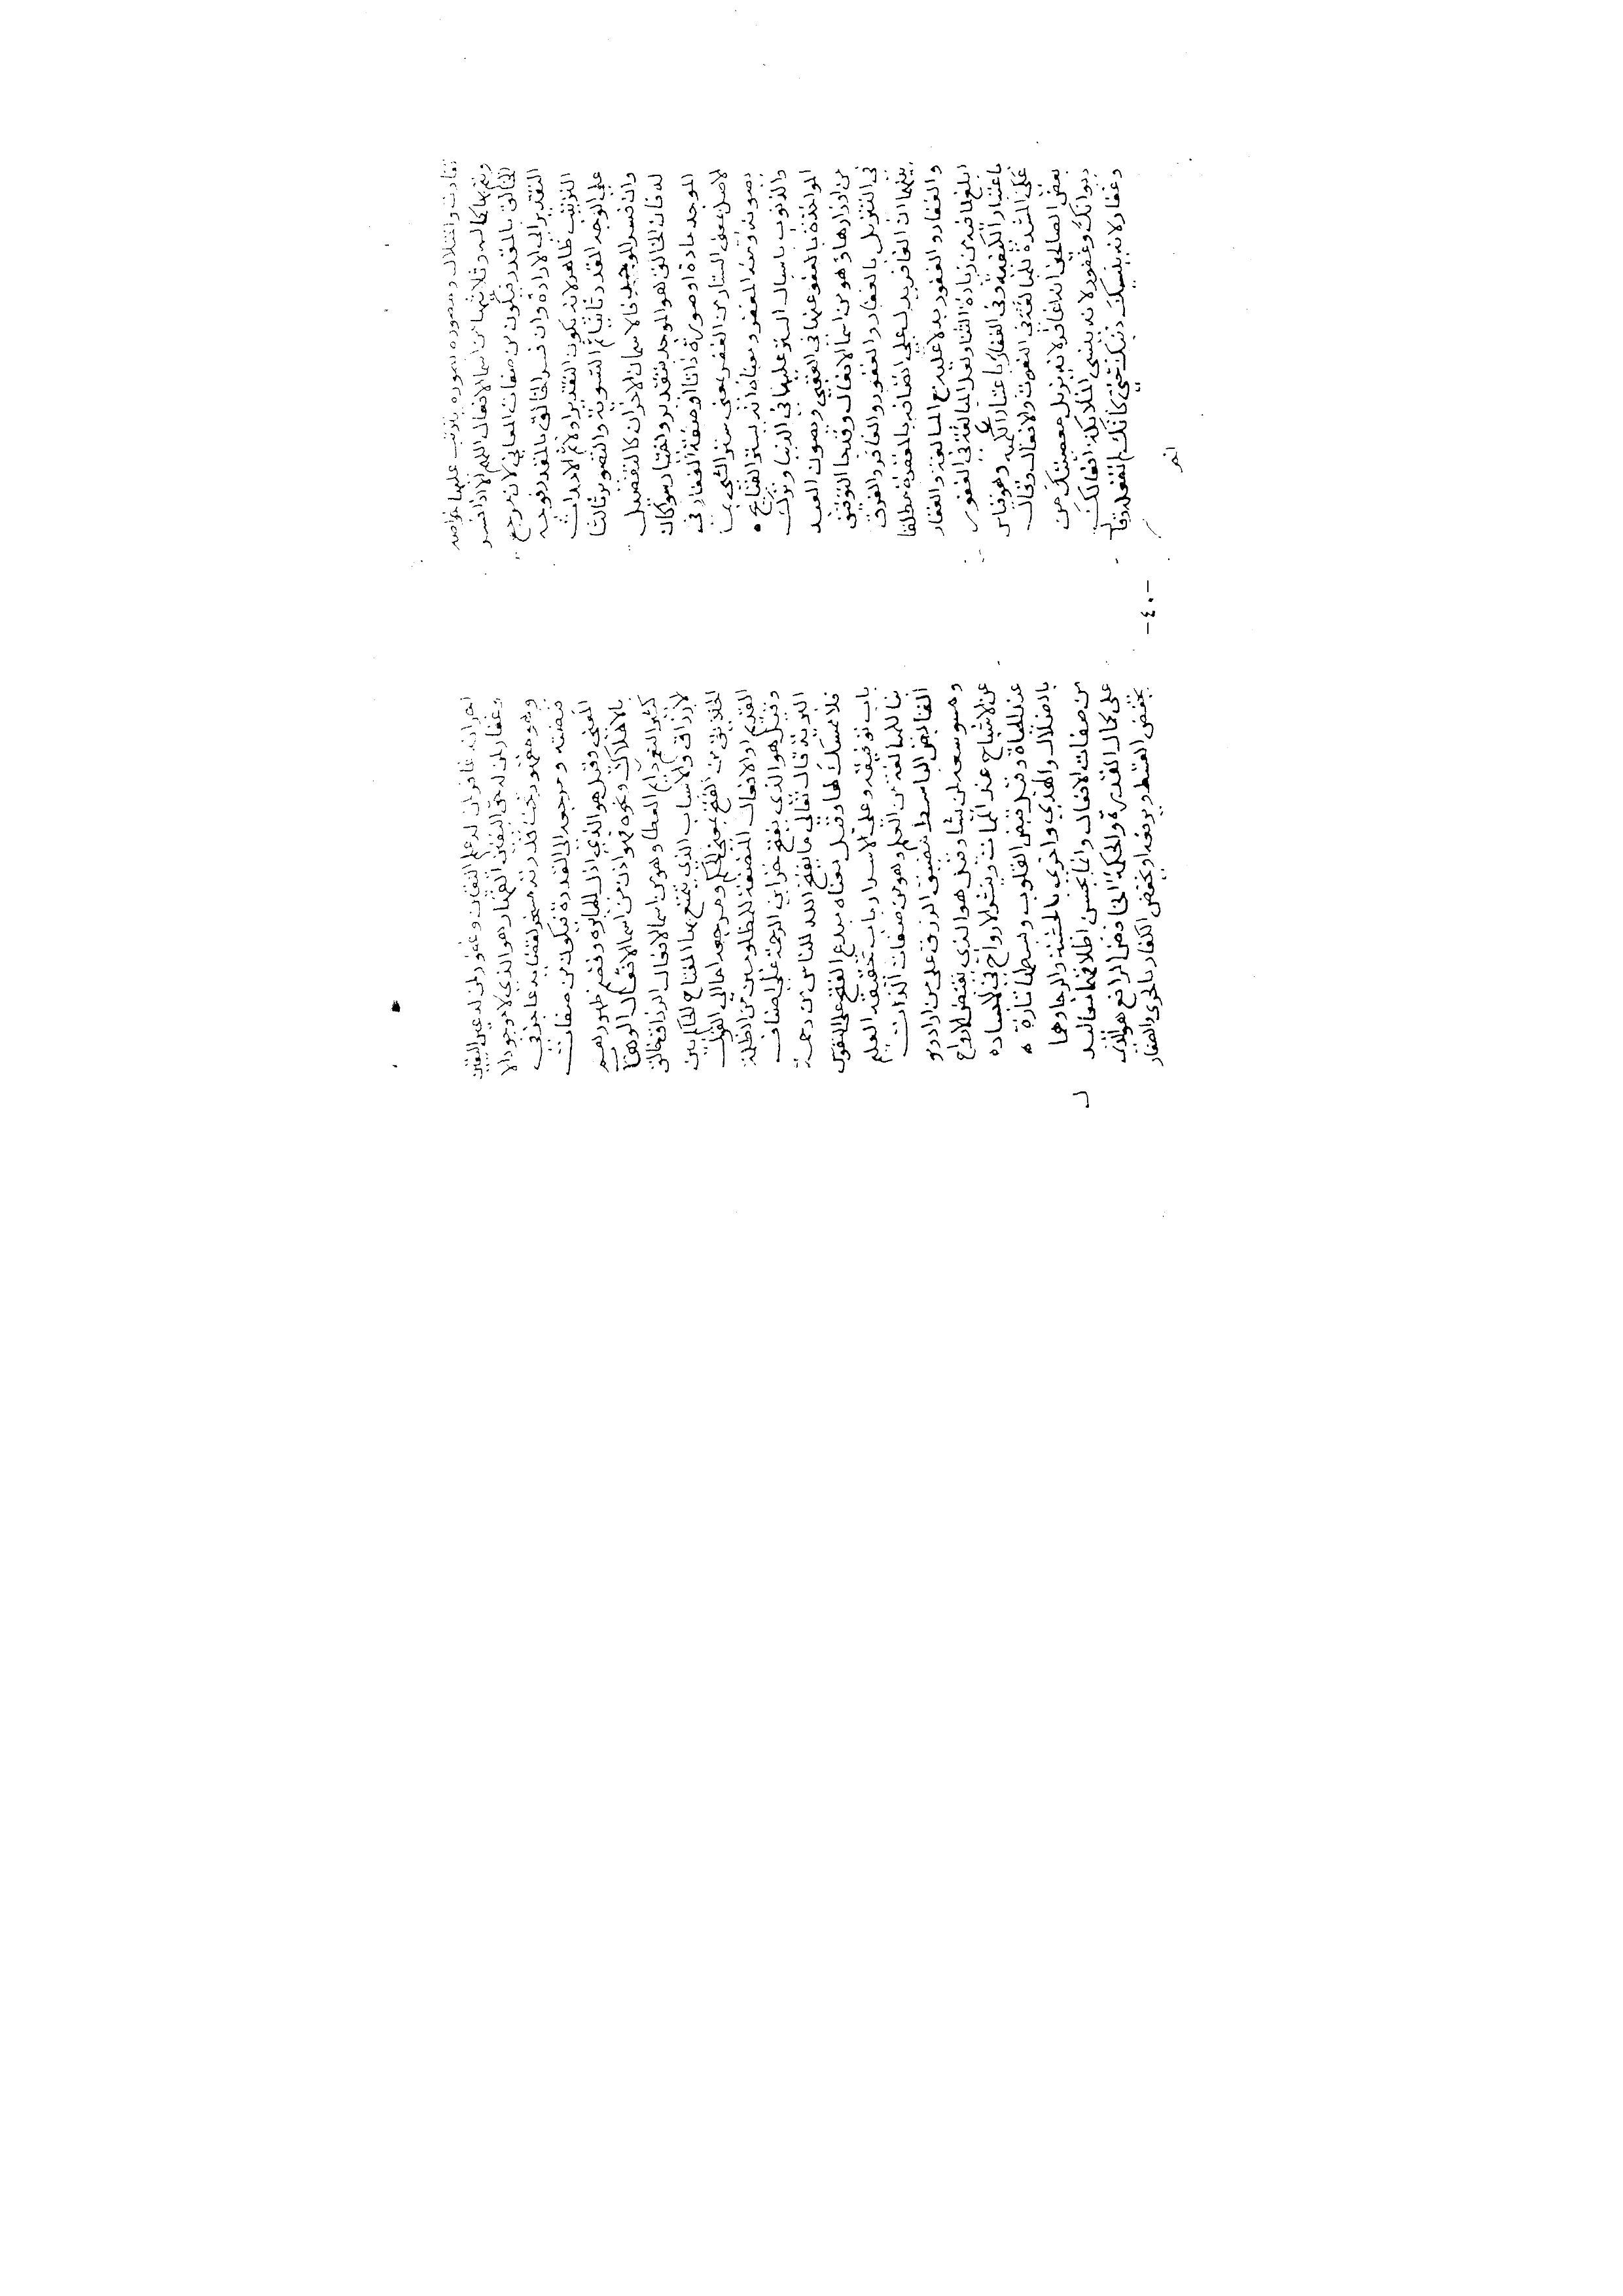 تفاوت واختلال ومصوره بصورة يترتب عليها خواصه
ويتم بها كماله وثلاثتها من اسما الافعال اللهم الا اذا فسر
الخالق بالمقدر فيكون من صفات المعاني لان مرجع
التقدير الى الارادة وان فسر الخالق بالمقدر فوجه
الترتيب ظاهر لانه يكون التقدير اولا ثم الاحداث
على الوجه المقدر ثانيا ثم التسوية والتصوير ثالثا
وان فسر الموجد فالاسمان الاخران كالتفصيل
له فان الخالق هو الموجد بتقدير واختيار سوا كان
الموجد مادة او صورة ذاتا او صفة الغفار في
الاصل بمعنى الستار من الغفر بمعنى ستر الشي بما
يصونه ومنه المغفر ومعناه انه يستر القبايح
والذنوب باسبال الستر عليها في الدنيا وترك
المواخذة بالعفو عنها في العقبى ويصون العبد
من اوزارها وهو من اسما الافعال وقد جا التوقيف
في التنزيل بالغفار والغفور والغافر والفرق
بينهما ان الغافر يدل على اتصافه بالمغفرة مطلقا
والغفار والغفور يدلا عليه مع المبالغة والغفار
ابلغ لما فيه من زيادة البنا ولعل المبالغة في الغفور
باعتبار الكيفية وفي الغفار باعتبار الكمية وهو قياس
على المشدد للمبالغة في النعوت والافعال وقال
بعض الصالحين انه غافر لانه يزيل معصيتك من
ديوانك وغفور لانه ينسي الملائكة افعالك
وغفار لانه ينسيك ذنبك حتى كانك لم تفعله وقال
اخر
-٤٠-
اخر انه غافر لمن له علم اليقين وغفور لمن له عين اليقين
وغفار لمن له حق اليقين القهار هو الذي لا موجود الا
وهو مقهور تحت قدرته مسخر لقضايه عاجز في
قبضته ومرجعه الى القدرة فيكون من صفات
المعنى وقيل هو الذي اذل الجبابرة وقصم ظهورهم
بالاهلاك ونحوه فهو اذن من اسما الافعال الوهاب
كثير النعم دايم العطا وهو من اسما الافعال الرزاق خالق
الارزاق والاسباب الذي يتمتع بها الفتاح الحاكم بين
الخلايق من الفتح بمعنى الحكم ومرجعه اما الى القول
القديم او الافعال المنصفة للمظلومين من الظلمة
وقيل هو الذي يفتح خزاين الرحمة على اصناف
البرية قال تعالى ما يفتح الله للناس من رحمة
فلا ممسك لها وقيل معناه مبدع الفتح على النفوس
باب توفيقه وعلى الاسرار باب تحقيقه العليم
بنا للمبالغة من العلم وهو من صفات الذات
القابض الباسط تضييق الرزق على من اراد و
ويوسعه لمن يشا وقيل هو الذي يقبض الارواح
عن الاشباح عند الممات وينشر الارواح في الاجساد
عند الحياة وقيل قبض القلوب وبسطها تارة
بالضلال والهدى واخرى بالخشية والرجا وهما
من صفات الافعال وانما يحسن اطلاقهما معا ليدل
على كمال القدرة والحكمة الخافض الرافع هو الذي
يخفض القسط ويرفعه او يخفض الكفار بالخزي والصغار